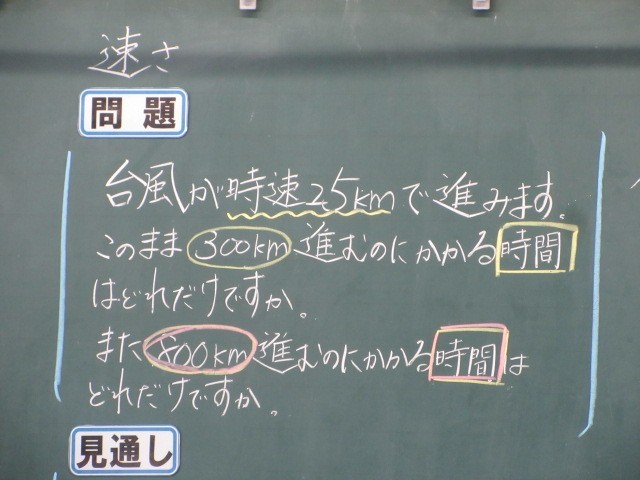 速さ
問題
台風が時速25kmで進みます。
このまま300km進むのにかかる時間
はどれだけですか。
また800km進むのにかかる時間は
どれだけですか。
見通し